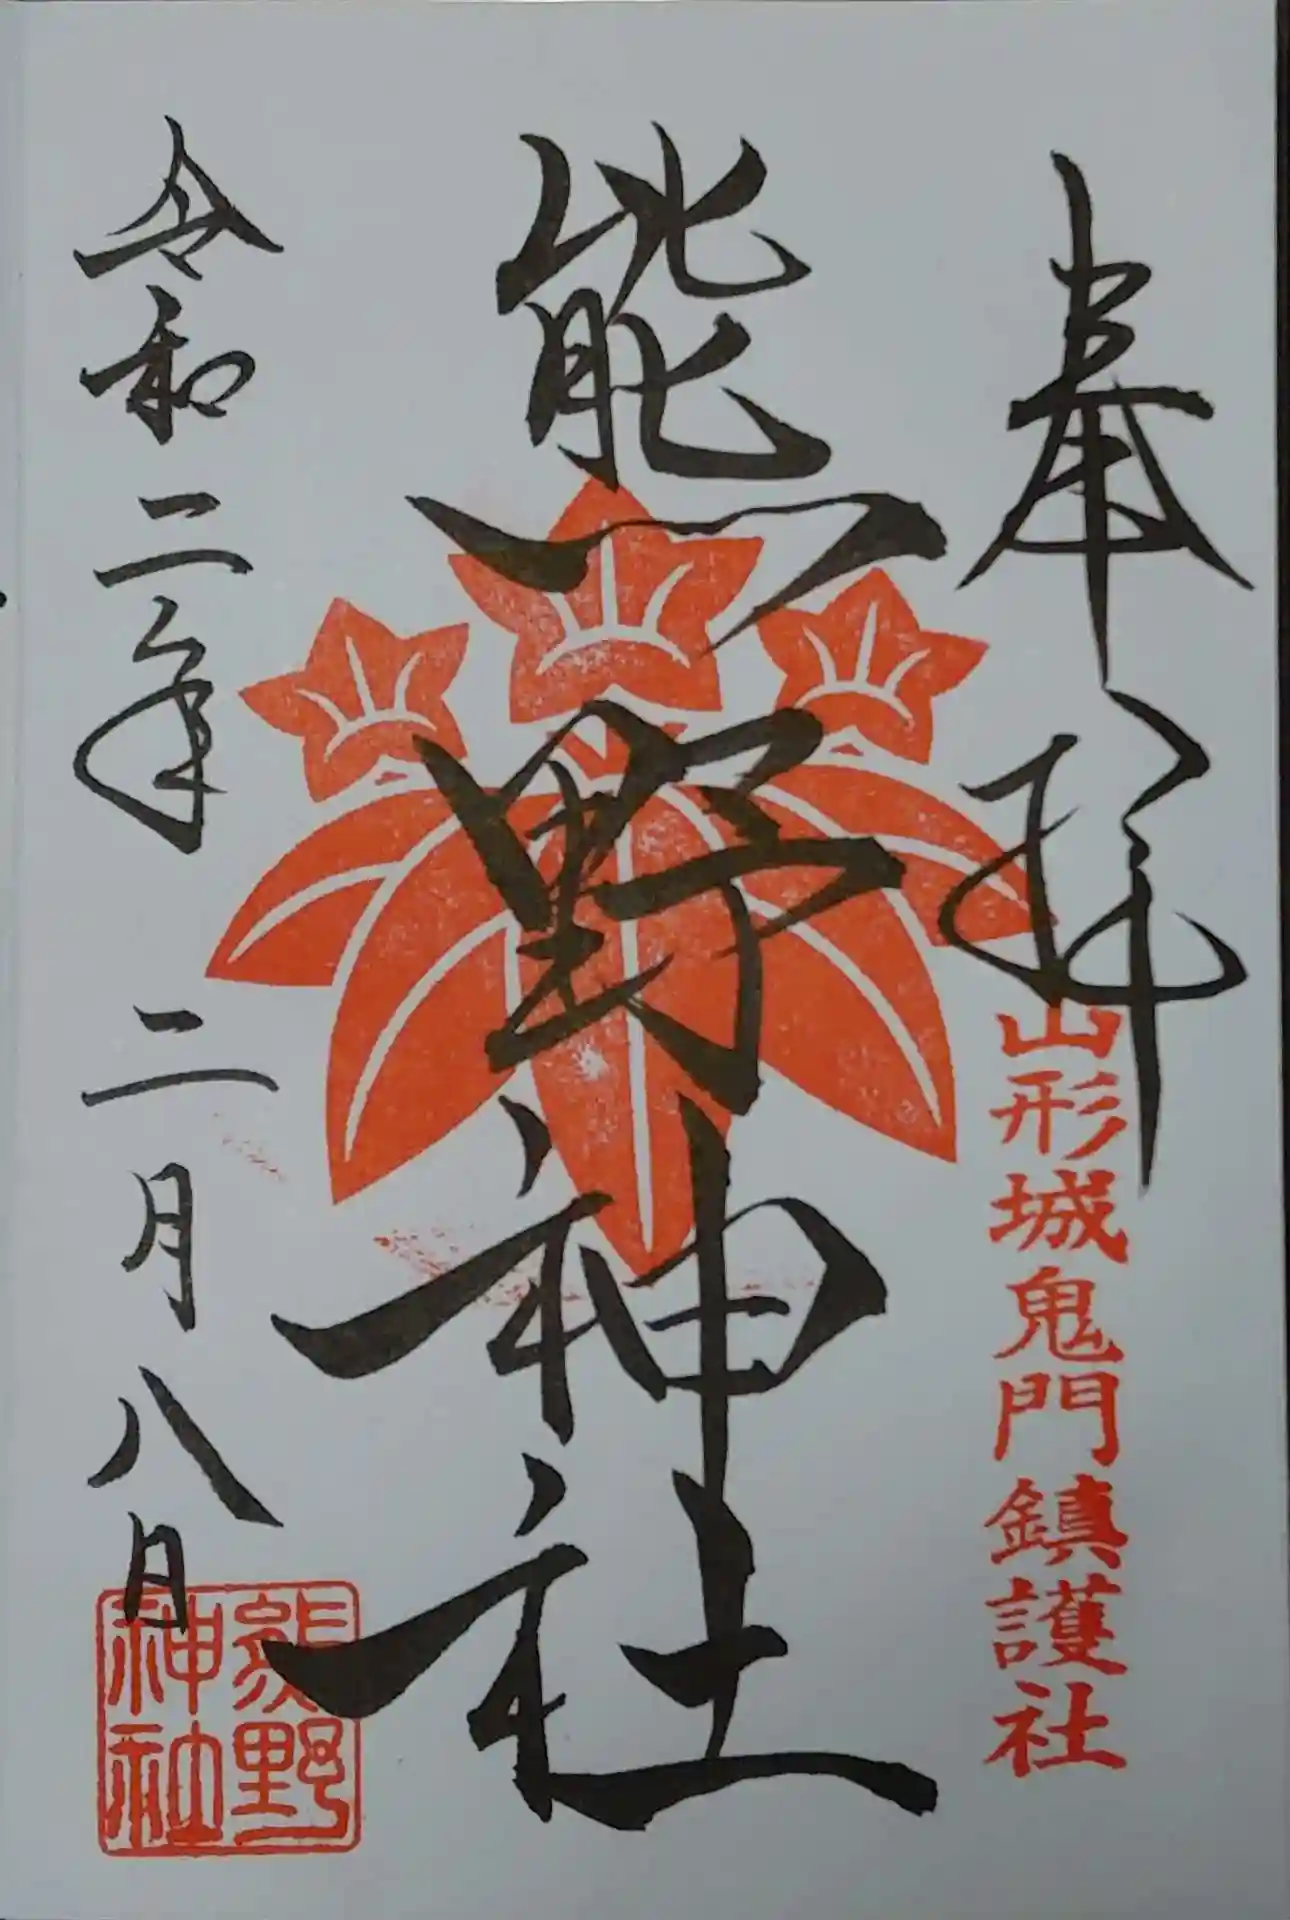 奉拝
山形城鬼門鎮護社
熊野神社
令和二年 二月八日
熊野
神社